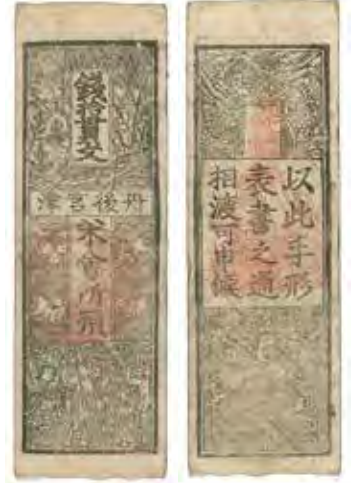 銭拾貫文
丹後宮津
米會所引
以此手形
表書之通
相渡可申候